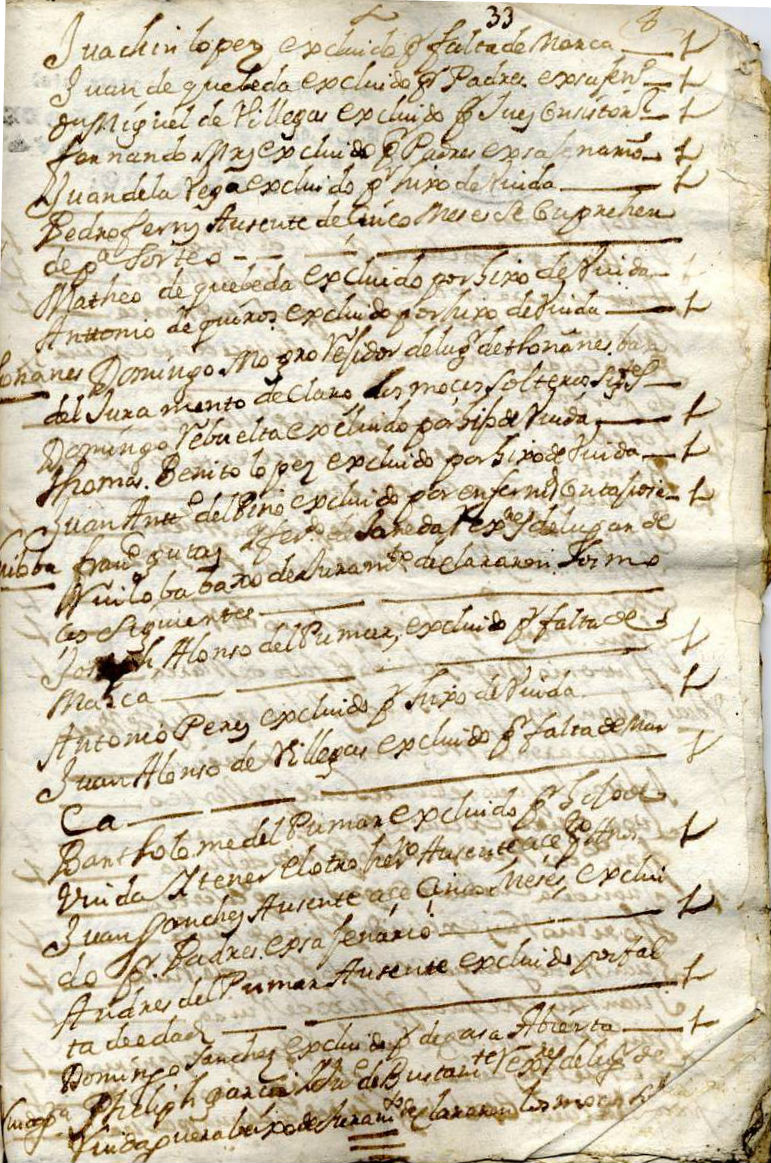 33
Juachin lopez excluido pr falta de Marca
Juan de quebeda excluido pr Padre sexsajenº
Dn Miguel de Villegas excluido pr Juez Consistorl
fernando excluido pr Padre sexsajenario
Juan de la Vega excluido pr hixo de Viuda
Pedro ferrz Ausente de Cinco Meses se Conprehen
de pa Sorteo
Matheo de quebeda excluido por hixo de Viuda
Anttonio de quiros excluido por hixo de Viuda
Domingo Mogro Rexidor de lugr de
del Juramento declaro los mocos solteros sigtes
Domingo Rebuelta excluido por hijo de Viuda
thomas Benito lopez excluido por hixo de Viuda
Juan Anttº del Pino excluido por enfermd
franº gutaz y ferdo de Rexres de lugar de
Quiloba baxo de Juramto declararon los mo
cos Siguientes
Joseph Alonso del Pumar, excluido pr falta de
Marca
Antonio Perez excluido pr hixo de Viuda
Juan Alonso de Villegas excluido pr falta de Mar
Ca
Bartholome del Pumar excluido pr hijo de
Viuda Y tener el otro herº Ausente ace
Juan Sanchez Ausente ace Cinco Meses, exclui
do pr Padre sexsajenario
Andres del Pumar Ausente excluido por fal
ta de edad
Domingo Sanchez excluido pr de casa Abierta
Pheliph garcia de Bustamte Rexres de lugr de
baxo de Juramto declararon los mocos